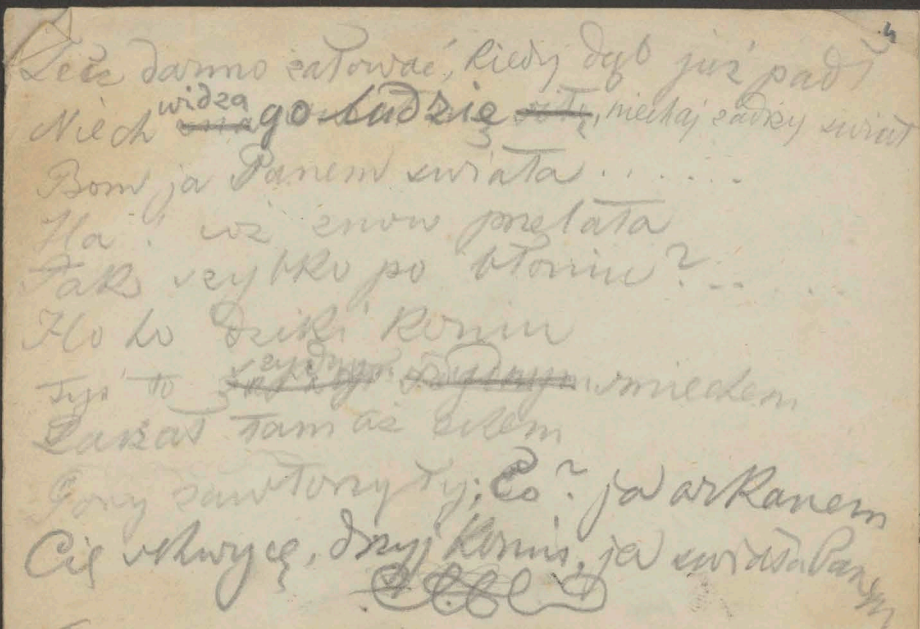 Lecz darmo żałować, kiedy dąb już padł
Niech widzą go ludzie, niechaj zadrży świat
Bom ja Panem świata......
Ha! cóż znów przelata
Tak szybko po błoniu?.....
Ho ho dziki koniu
Tyś to szyderczym śmiechem
Parskał tam aż echem
Góry zawtórzyły; Co? ja arkanem
Cię uchwycę, drzyj koniu, ja świata Panem